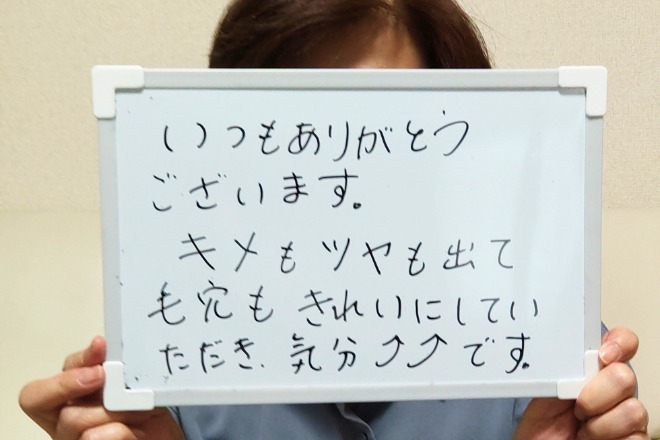 いつもありがとう
ございます。
キメもツヤも出て
毛穴もきれいにしてい
ただき、気分⤴⤴です。